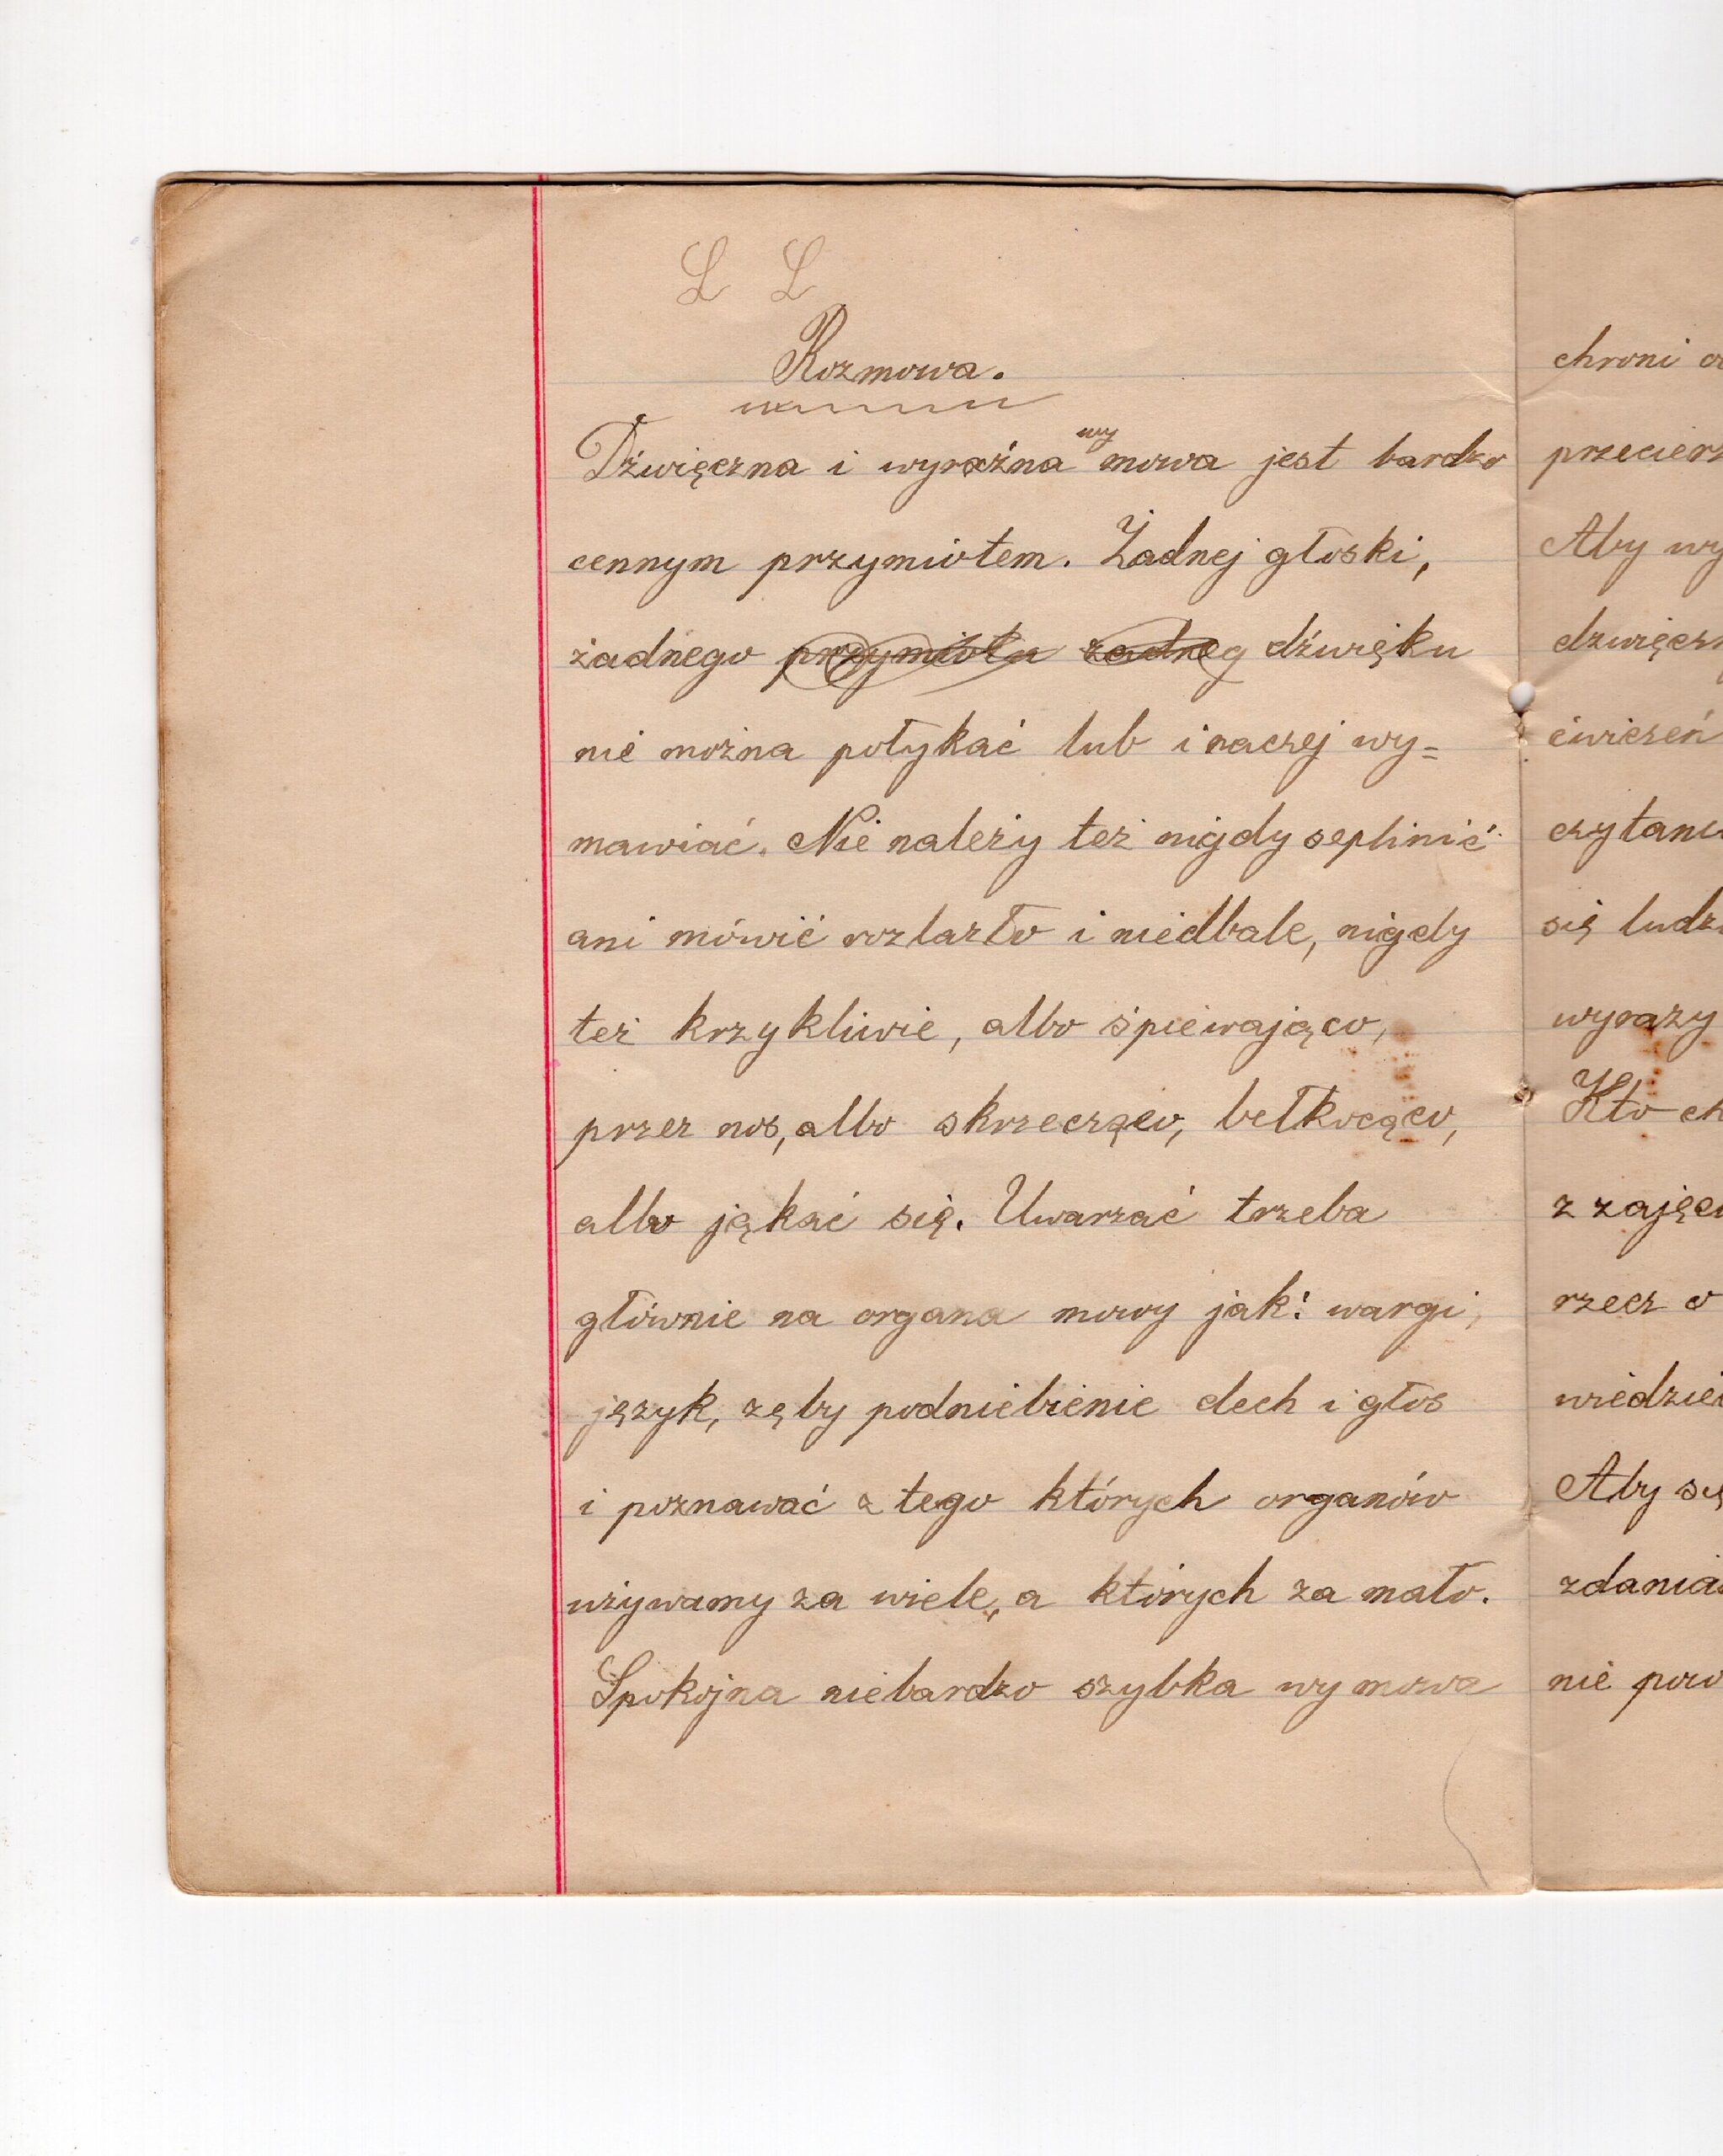 L L
Rozmowa.
Dźwięczna i wyraźna wymowa jest bardzo
cennym przymiotem. Żadnej głoski,
żadnego przymiotu żadneg dźwięku
nie można połykać lub inaczej wy=
mawiać. Nie należy też nigdy seplinić
ani mówić rozlazło i niedbale, nigdy
też krzykliwie, albo śpiewająco,
przez nos, albo skrzecząco, bełkocąco,
albo jąkać się. Uwarzać trzeba
głównie na organa mowy jak: wargi,
język, zęby podniebienie dech i głos
i poznawać z tego których organów
używamy za wiele, a których za mało.
Spokojna niebardzo szybka wymowa
chroni
przecierz
Aby wy
dzwięczn
ćwiczeń
czytani
się ludz
wyrazy
Kto ch
z zajęci
rzecz o
wiedzie
Aby się
zdania
nie pow